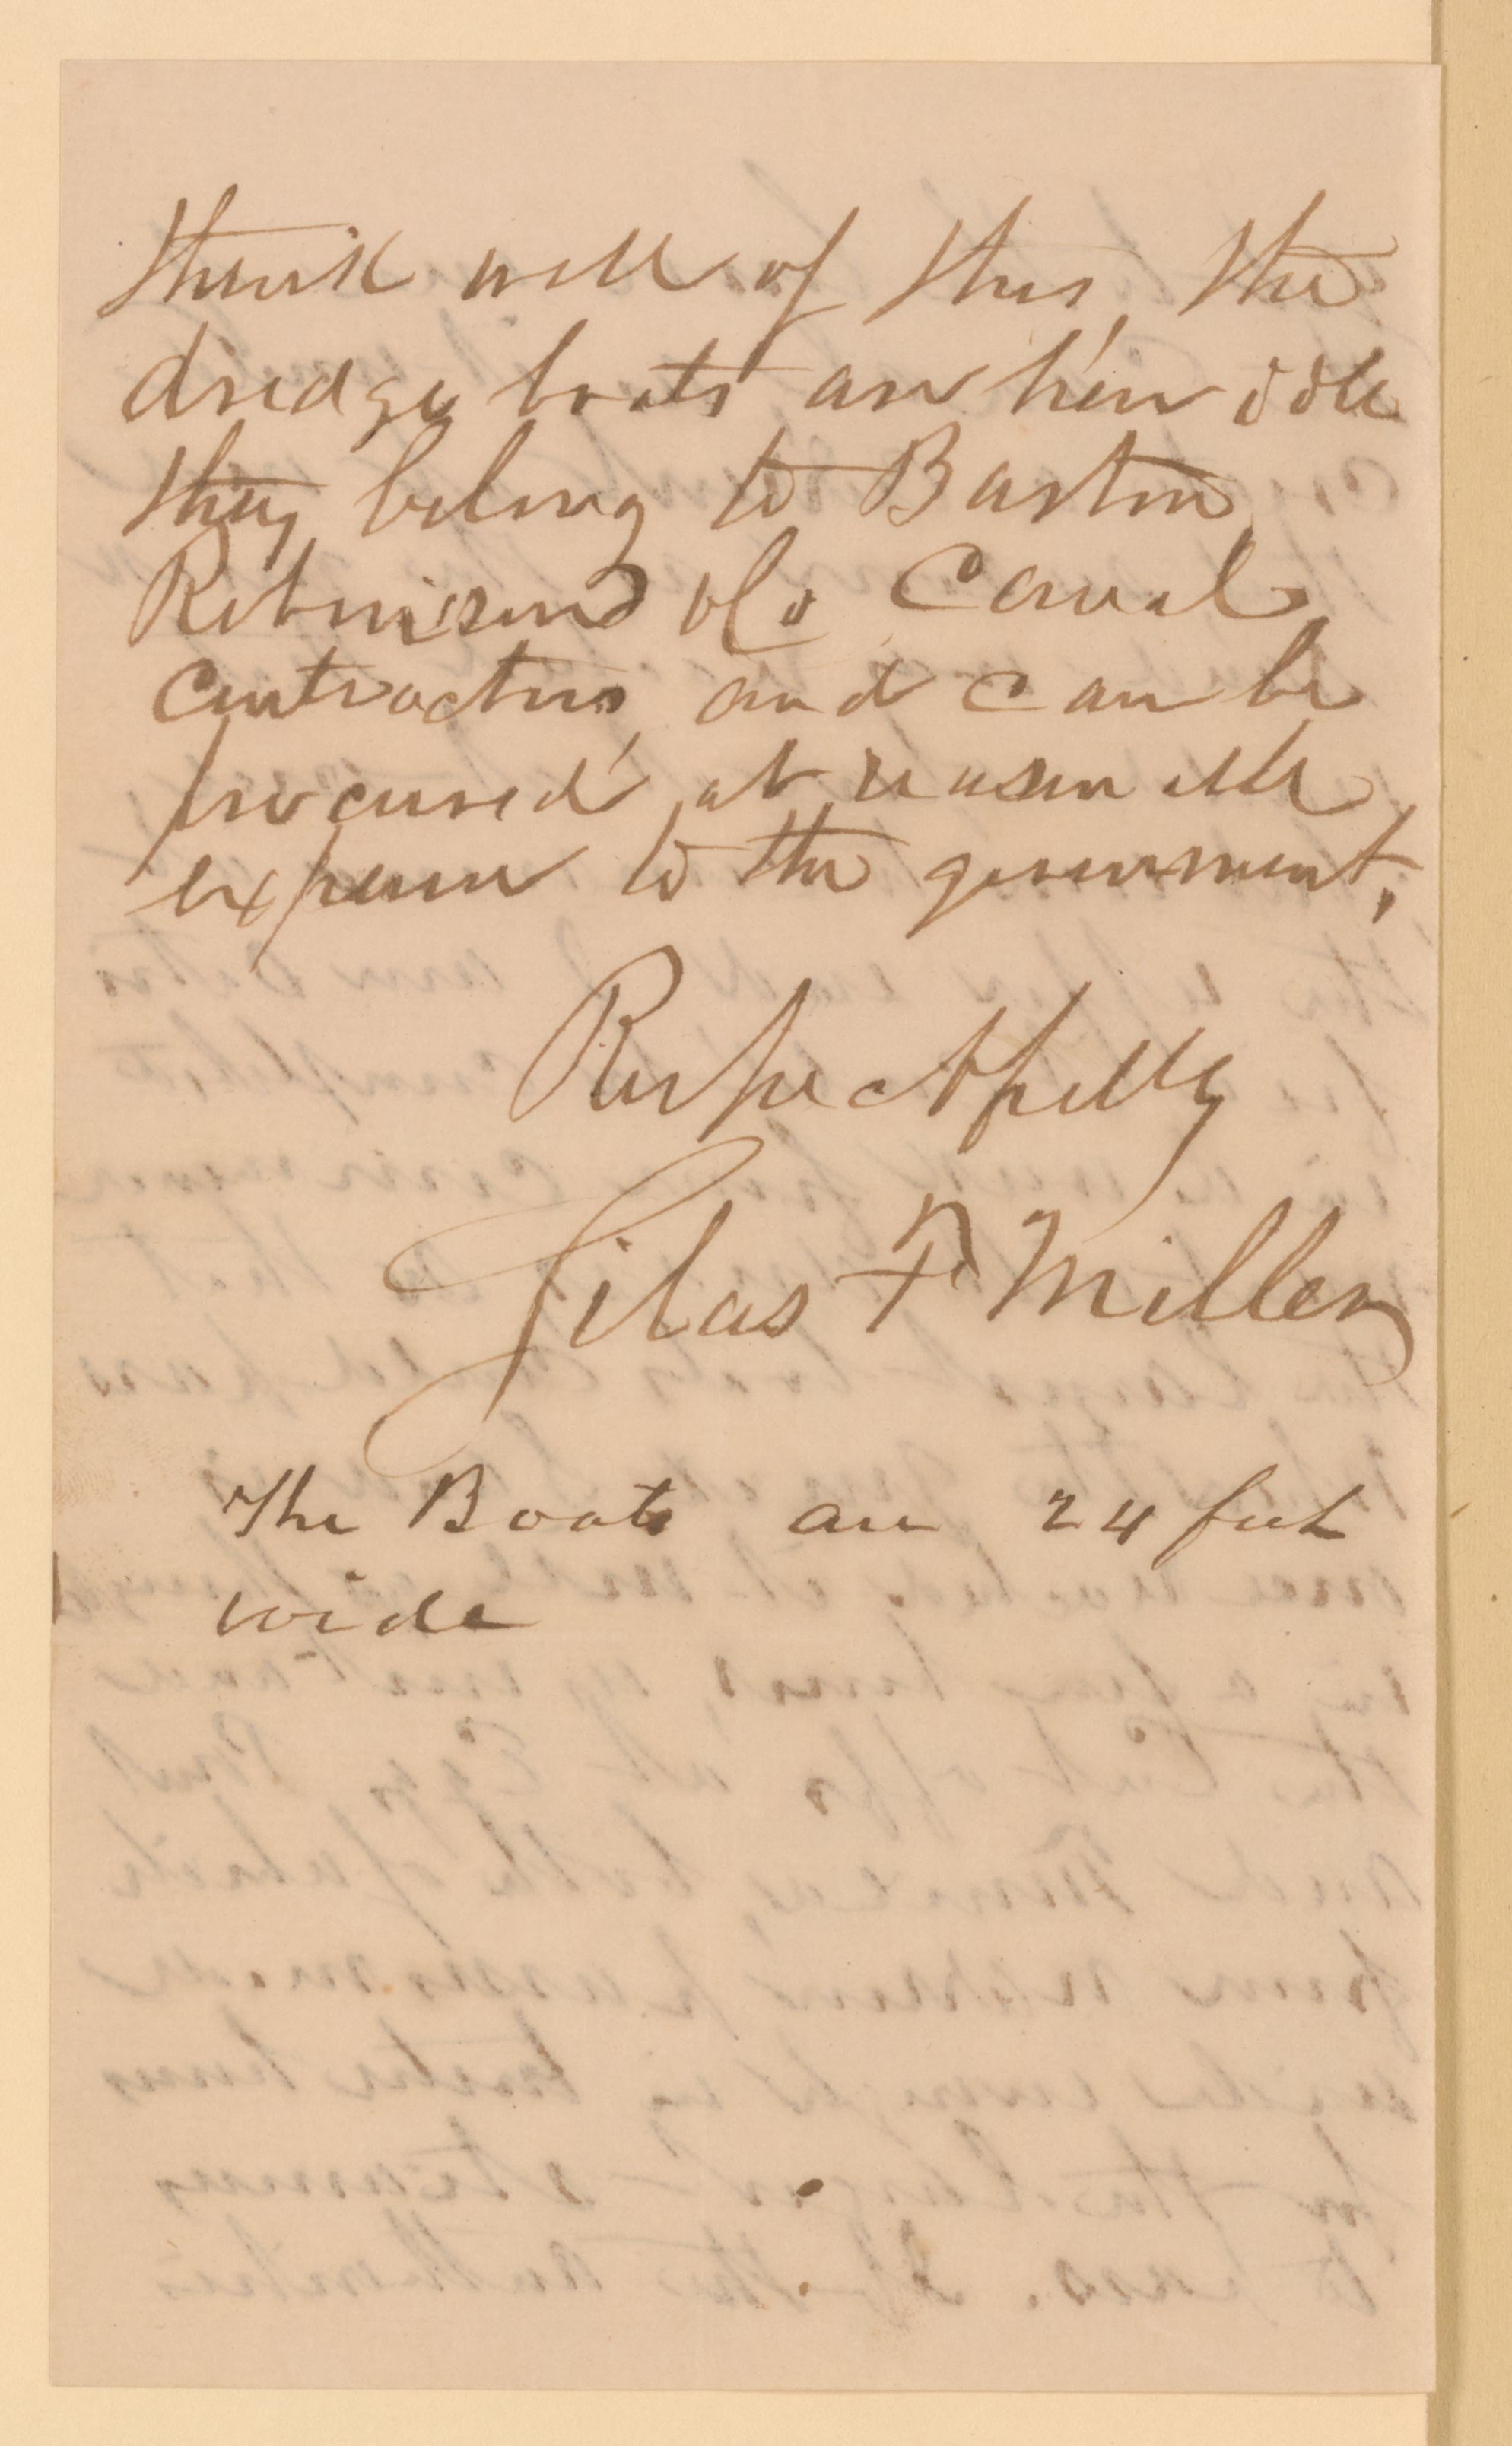 think well of this, the
dredge boats are here idle
they belong to Barton
Robinson & Co Canal
Contractors, and can be
procured, at reasonable
expense to the government.
Respectfully
Silas F Miller
The Boats are 24 feet
wide